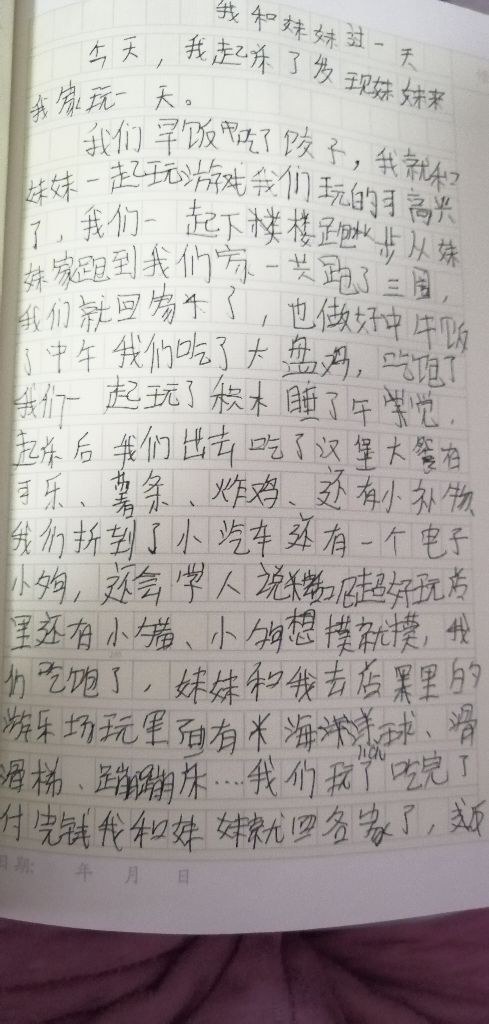 我和妹妹过一天
今天，我起床了发现妹妹来
我家玩一天。
我们早饭吃了饺子，我就和
妹妹一起玩游戏我们玩的可高兴
了，我们一起下楼楼跑步从妹
妹家跑到我们家一共跑了三圈，
我们就回家了，也做好中午饭
了中午我们吃了大盘鸡，吃饱了
我们一起玩了积木睡了午觉，
起床后我们出去吃了汉堡大餐有
可乐、薯条、炸鸡、还有小礼物
我们拆到了小汽车还有一个电子
小狗，还会学人说超好玩店
里还有小猫、小狗想摸就摸，我
们吃饱了，妹妹和我去店里的
游乐场玩里面有海洋球、滑
滑梯、蹦蹦床…我们玩了吃完了
付完钱我和妹妹就回各家了，
日期: 年 月 日